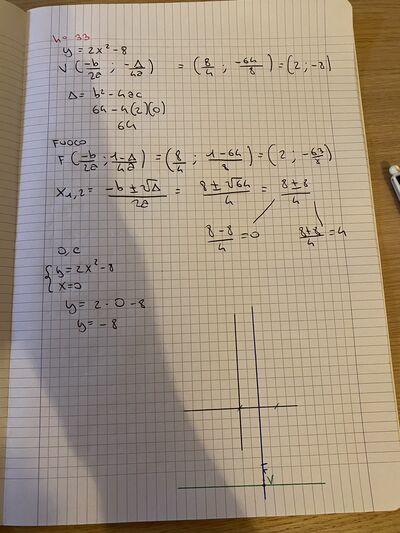 no 33
y = 2x² - 8
V (-b/2a ; -Δ/4a) = (8/4 ; -64/8) = (2 ; -8)
Δ = b² - 4ac
64 - 4(2)(0)
64
FUOCO
F (-b/2a ; 1-Δ/4a) = (8/4 ; 1-64/8) = (2 ; -63/8)
x₁,₂ = -b ± √Δ/2a = 8 ± √64/4 = 8 ± 8/4
8-8/4 = 0 8+8/4 = 4
0, c
{ y = 2x² - 8
x = 0
y = 2 · 0 - 8
y = - 8
V